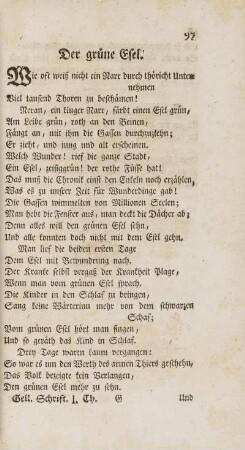 97
Der grüne Esel.
Wie oft weiß nicht ein Narr durch thöricht Unter-
nehmen
Viel tausend Thoren zu beschämen!
Neran, ein kluger Narr, färbt einen Esel grün,
Am Leibe grün, roth an den Beinen,
Fängt an, mit ihm die Gassen durchzuziehn;
Er zieht, und jung und alt erscheinen.
Welch Wunder! rief die ganze Stadt,
Ein Esel, zeisiggrün! der rothe Füsse hat!
Das muß die Chronik einst den Enkeln noch erzählen,
Was es zu unsrer Zeit für Wunderdinge gab!
Die Gassen wimmelten von Millionen Seelen;
Man hebt die Fenster aus, man deckt die Dächer ab;
Denn alles will den grünen Esel sehn,
Und alle konnten doch nicht mit dem Esel gehn.
Man lief die beiden ersten Tage
Dem Esel mit Bewundrung nach.
Der Kranke selbst vergaß der Krankheit Plage,
Wenn man vom grünen Esel sprach.
Die Kinder in den Schlaf zu bringen,
Sang keine Wärterinn mehr von dem schwarzen
Schaf;
Vom grünen Esel hört man singen,
Und so geräth das Kind in Schlaf.
Drey Tage waren kaum vergangen:
So war es um den Werth des armen Thiers geschehn,
Das Volk bezeigte kein Verlangen,
Den grünen Esel mehr zu sehn.
Gell. Schrift. I. Th. G Und